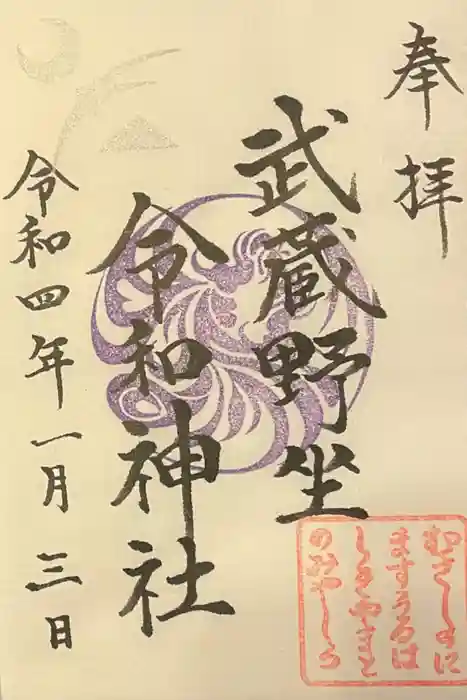 奉拝
武蔵野坐
令和神社
令和四年一月三日
むさしのに
ますうるは
しきやまと
のみやしろ